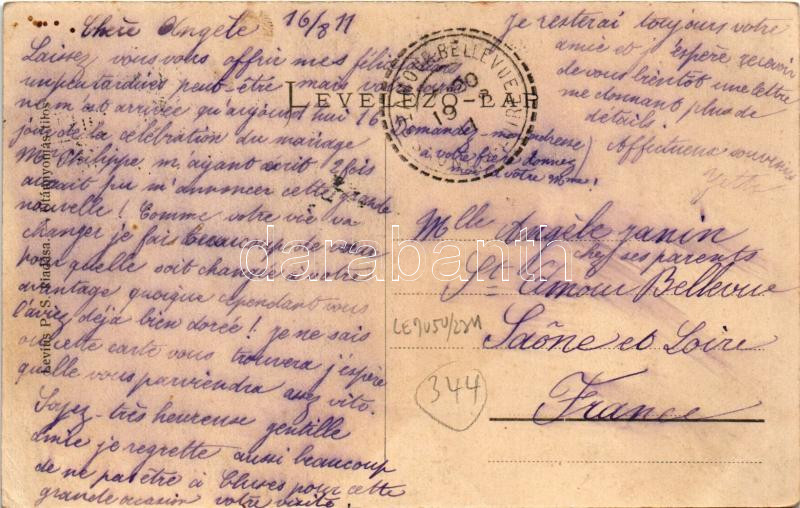 16/8 11
Chère Angèle
Laissez vous vous offrir mes félicitations
un peu tardives peut-être mais votre
ne m'est arrivée qu'aujourd'hui 16
jour de la célébration du mariage
Mr Philippe m'ayant écrit 2 fois
aurait pu m'annoncer cette grande
nouvelle ! Comme votre vie va
changer je fais beaucoup de vœux
pour qu'elle soit changée à votre
avantage quoique cependant vous
l'aviez déjà bien dorée ! je ne sais
où cette carte vous trouvera j'espère
qu'elle vous parviendra assez vite.
Soyez très heureuse gentille
amie je regrette aussi beaucoup
de ne pas être à pour cette
grande occasion votre visite !
je resterai toujours votre
amie et j'espère recevoir
de vous bientôt une lettre
me donnant plus de
détails.
Affectueux souvenirs
Yette
Demandez mon adresse
à votre frère donnez
moi de votre !
LEVELEZŐ-LAP
BELLEVUE
19
Mlle Angèle Janin
chez ses parents
St Amour Bellevue
Saône et Loire
France
LE7050/2211
344
Levius P. S. kiadása.
darabanth